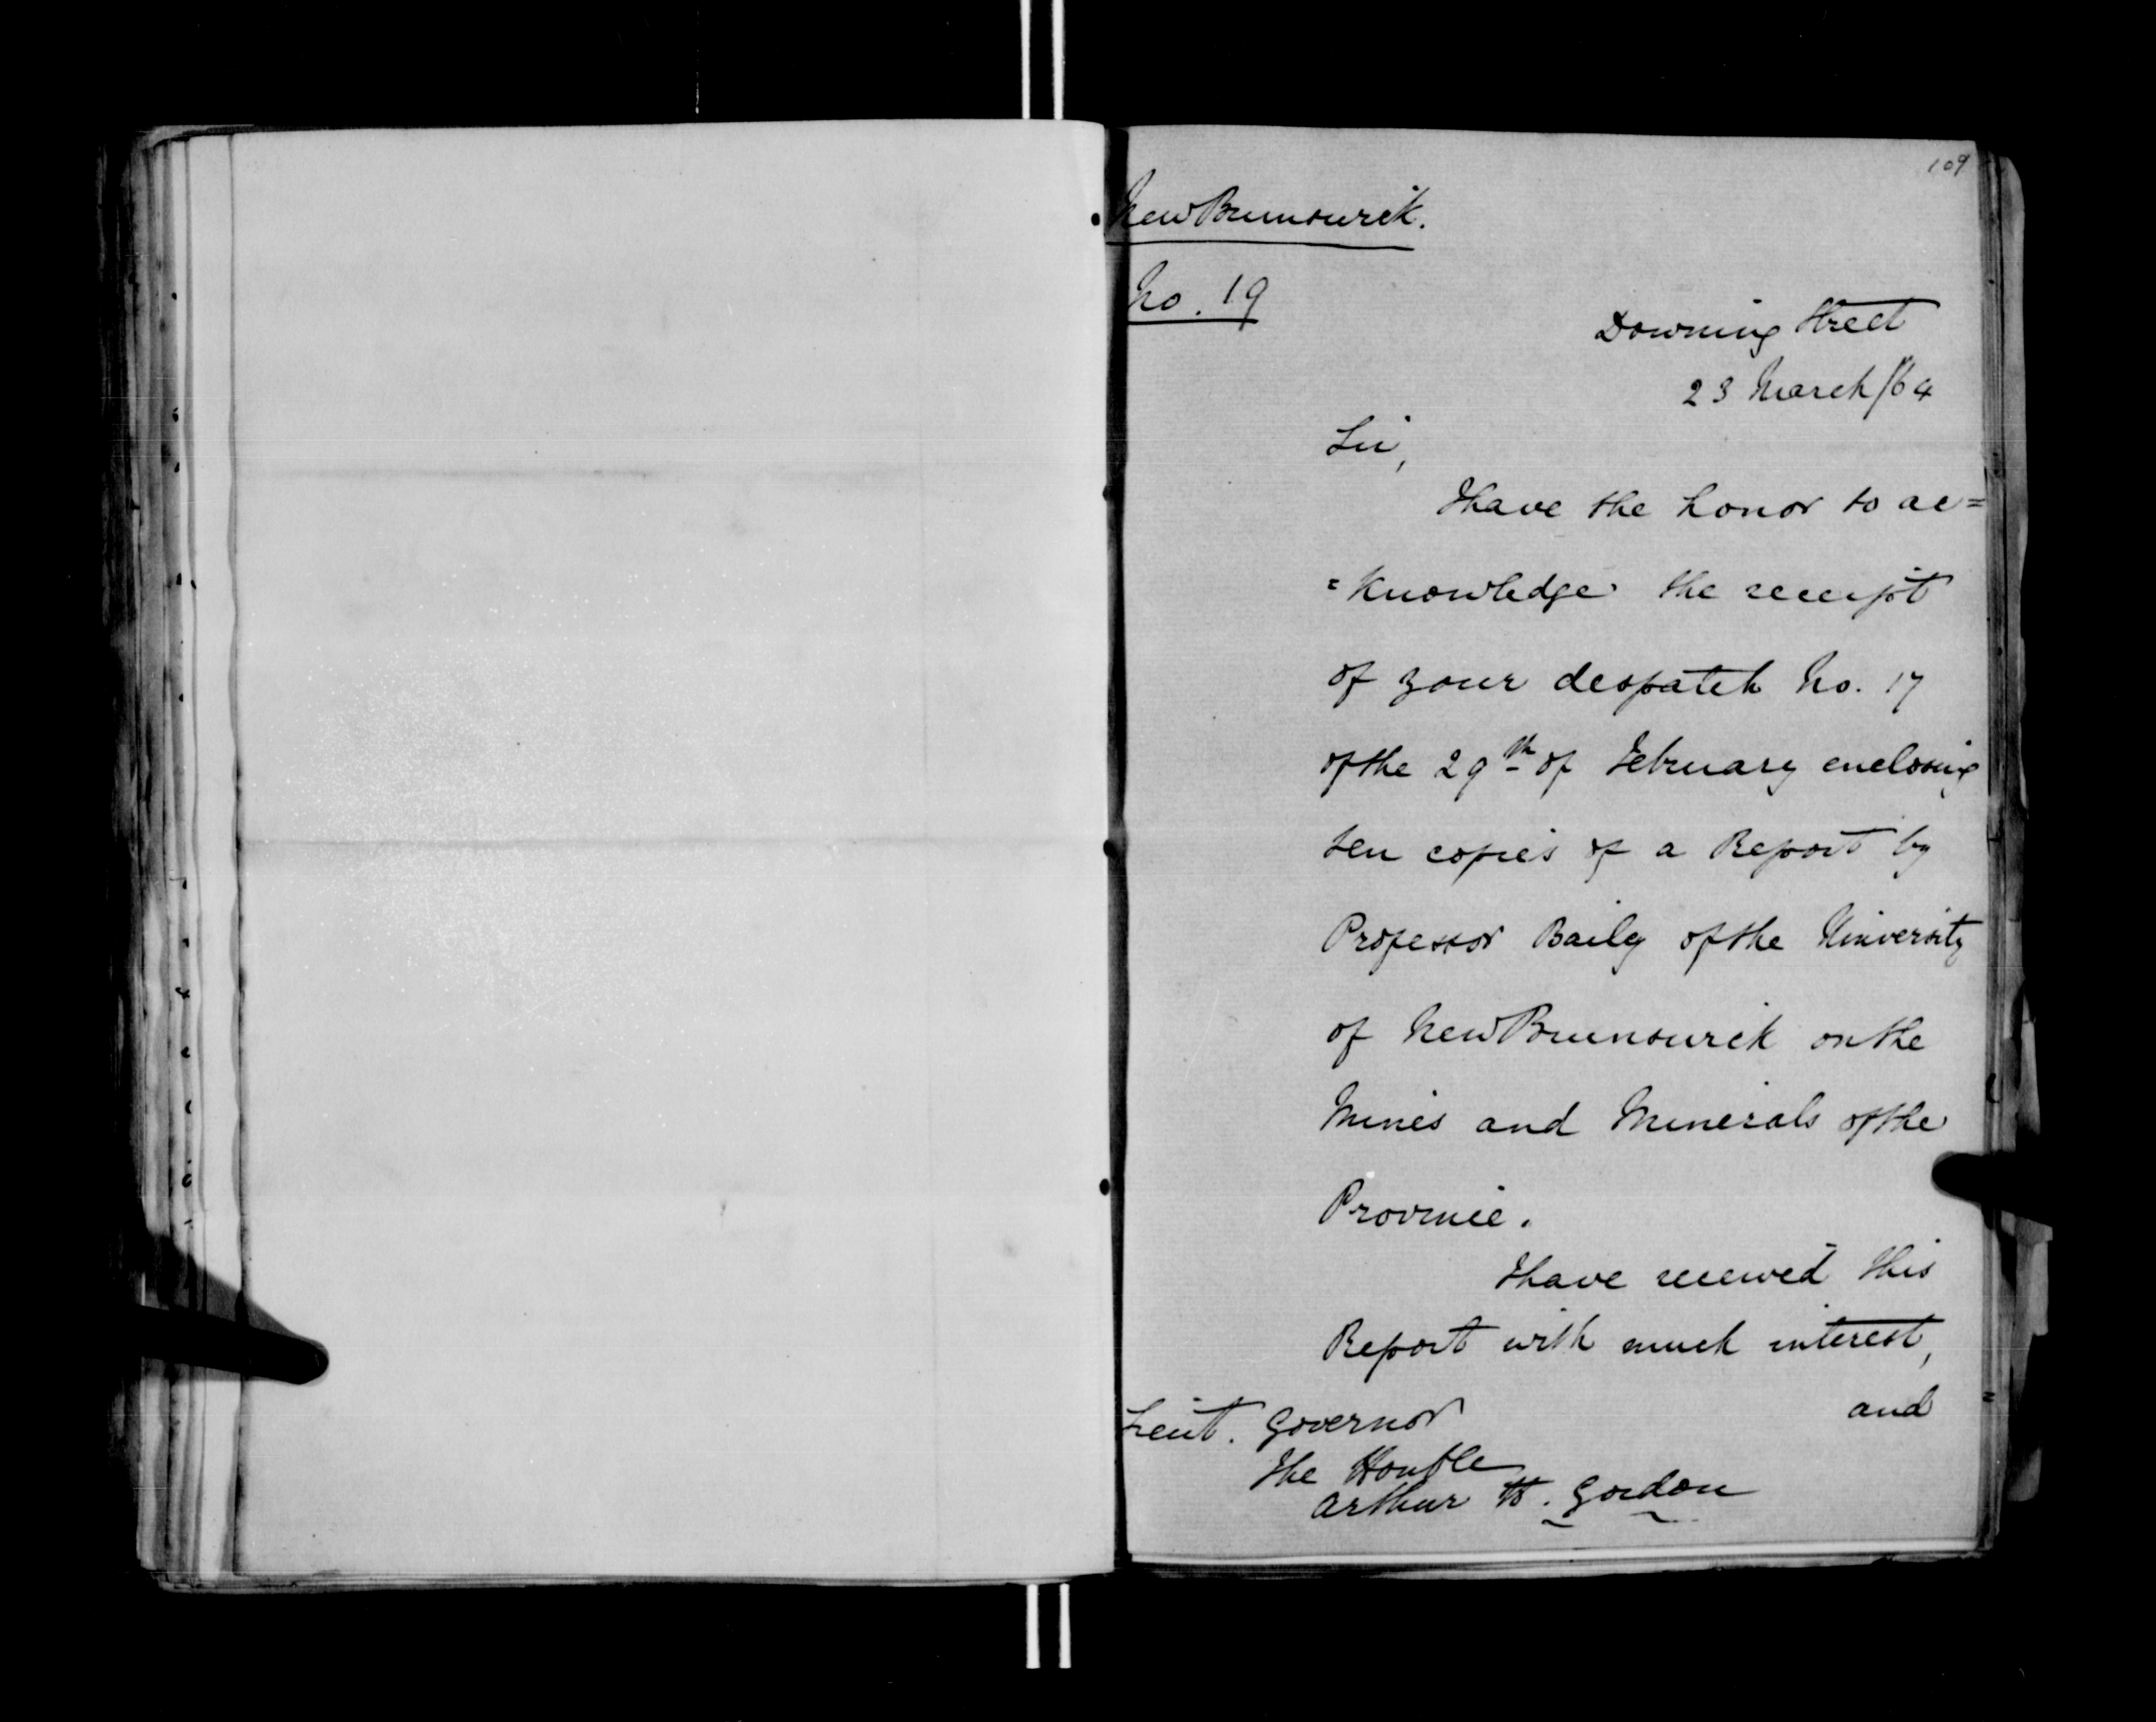 109
New Brunswick.
No. 19
Downing Street
23 March/64
Sir,
I have the honor to ac=
=knowledge the receipt
of your despatch No. 17
of the 29th of February enclosing
ten copies of a Report by
Professor Baily of the University
of New Brunswick on the
Mines and Minerals of the
Province.
I have received this
Report with much interest,
and
Lieut. Governor
The Honble
Arthur H. Gordon